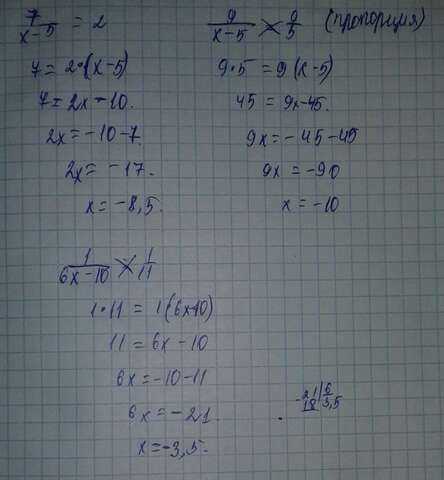 7/(x-5) = 2
7 = 2·(x-5)
7 = 2x-10.
2x = -10-7.
2x = -17.
x = -8,5.
9/(x-5) × 9/5 (пропорция)
9·5 = 9(x-5)
45 = 9x-45.
9x = -45-45
9x = -90
x = -10
1/(6x-10) × 1/11
1·11 = 1(6x-10)
11 = 6x-10
6x = -10-11
6x = -21.
x = -3,5.
-21|6
18|3,5